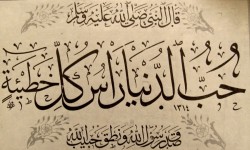 قال النبي صلى الله عليه وسلم
حُبُّ الدُّنْيَا رَأْسُ كُلِّ خَطِيئَةٍ
١٣١٤
صدق رسول الله ونطق حبيب الله